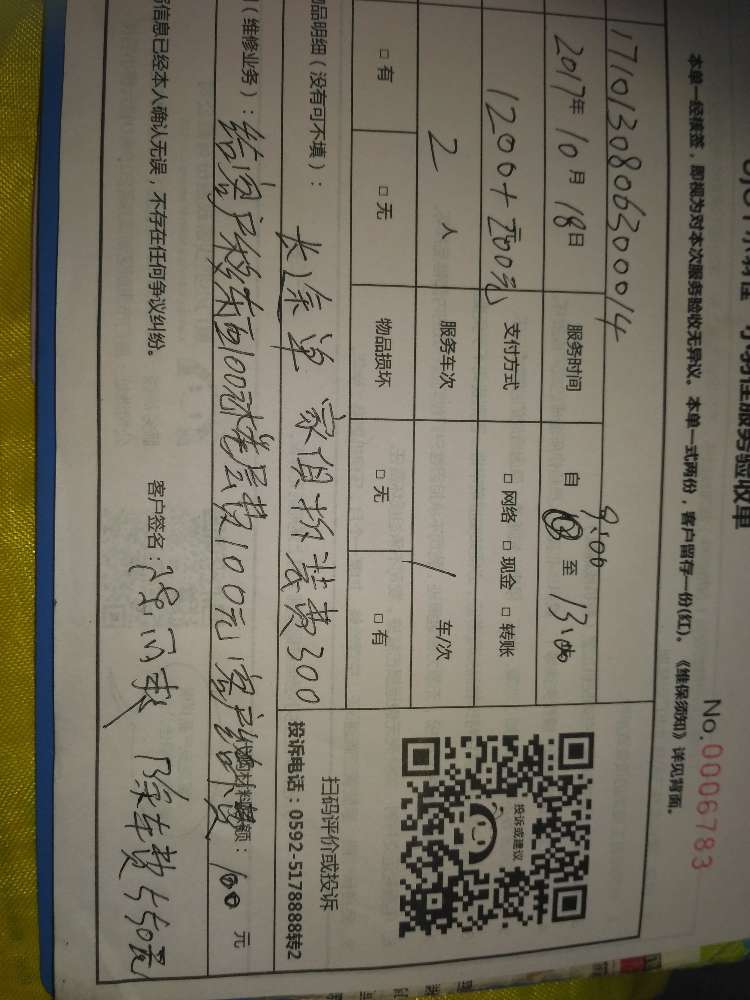 服务验收单
No.0006783
本单一经核签，即视为对本次服务验收无异议。本单一式两份，客户留存一份(红)。《维保须知》详见背面。
1710130806300014
2017年 10月 18日 服务时间 自 9:00 至 13:00
1200+ 支付方式 □ 网络 □ 现金 □ 转账
2 人 服务车次 1 车/次
□ 有 □ 无 物品损坏 □ 无 □ 有
投诉或建议
扫码评价或投诉
投诉电话：0592-5178888转2
物品明细（没有可不填）： 长途单 家俱拆装费300
（维修业务）：
100元
代购材料 额： 100 元
信息已经本人确认无误，不存在任何争议纠纷。
客户签名：
除车费550元